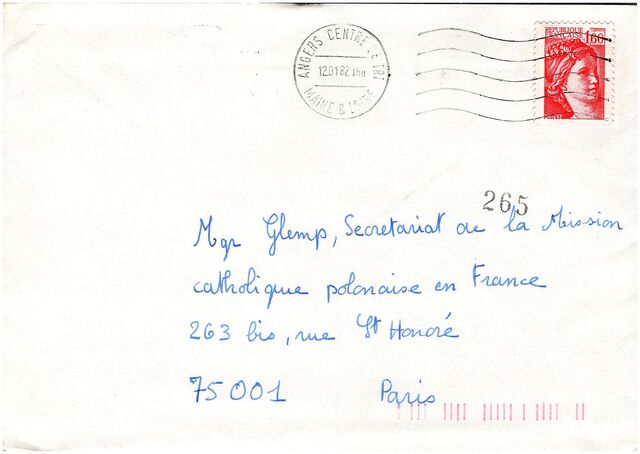 ANGERS CENTRE DE TRI
12.01.82 15H
MAINE & LOIRE
REPUBLIQUE
FRANÇAISE 1,60
265
Mgr Glemp, Secretariat de la Mission
catholique polonaise en France
263 bis, rue St Honoré
75001 Paris